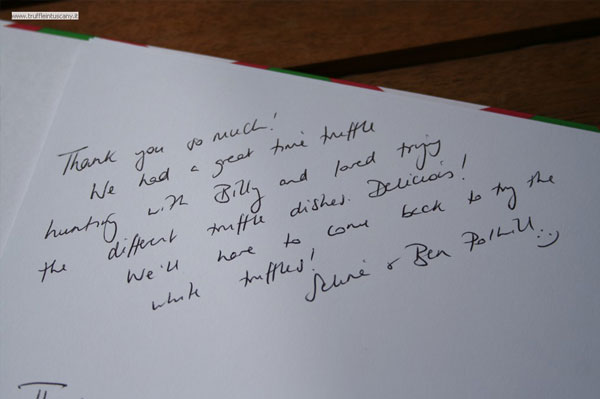 www.truffleintuscany.it
Thank you so much!
We had a great time truffle
hunting with Billy and loved trying
the different truffle dishes. Delicious!
We'll have to come back to try the
white truffles!
& Ben Polhill :)